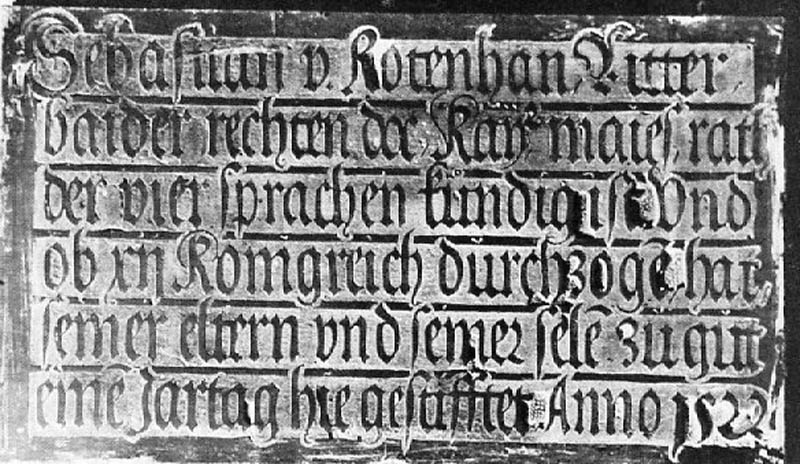 Sebastian v. Rotenhan Ritter
baider rechten doc Kay͛ maiest ratt
der vier sprachen kündig ist Vnd
ob xij Königreich durchzogē hat
seiner eltern vnd seiner selē zu gutt
einē Jartag hie gestifftet Anno 1522